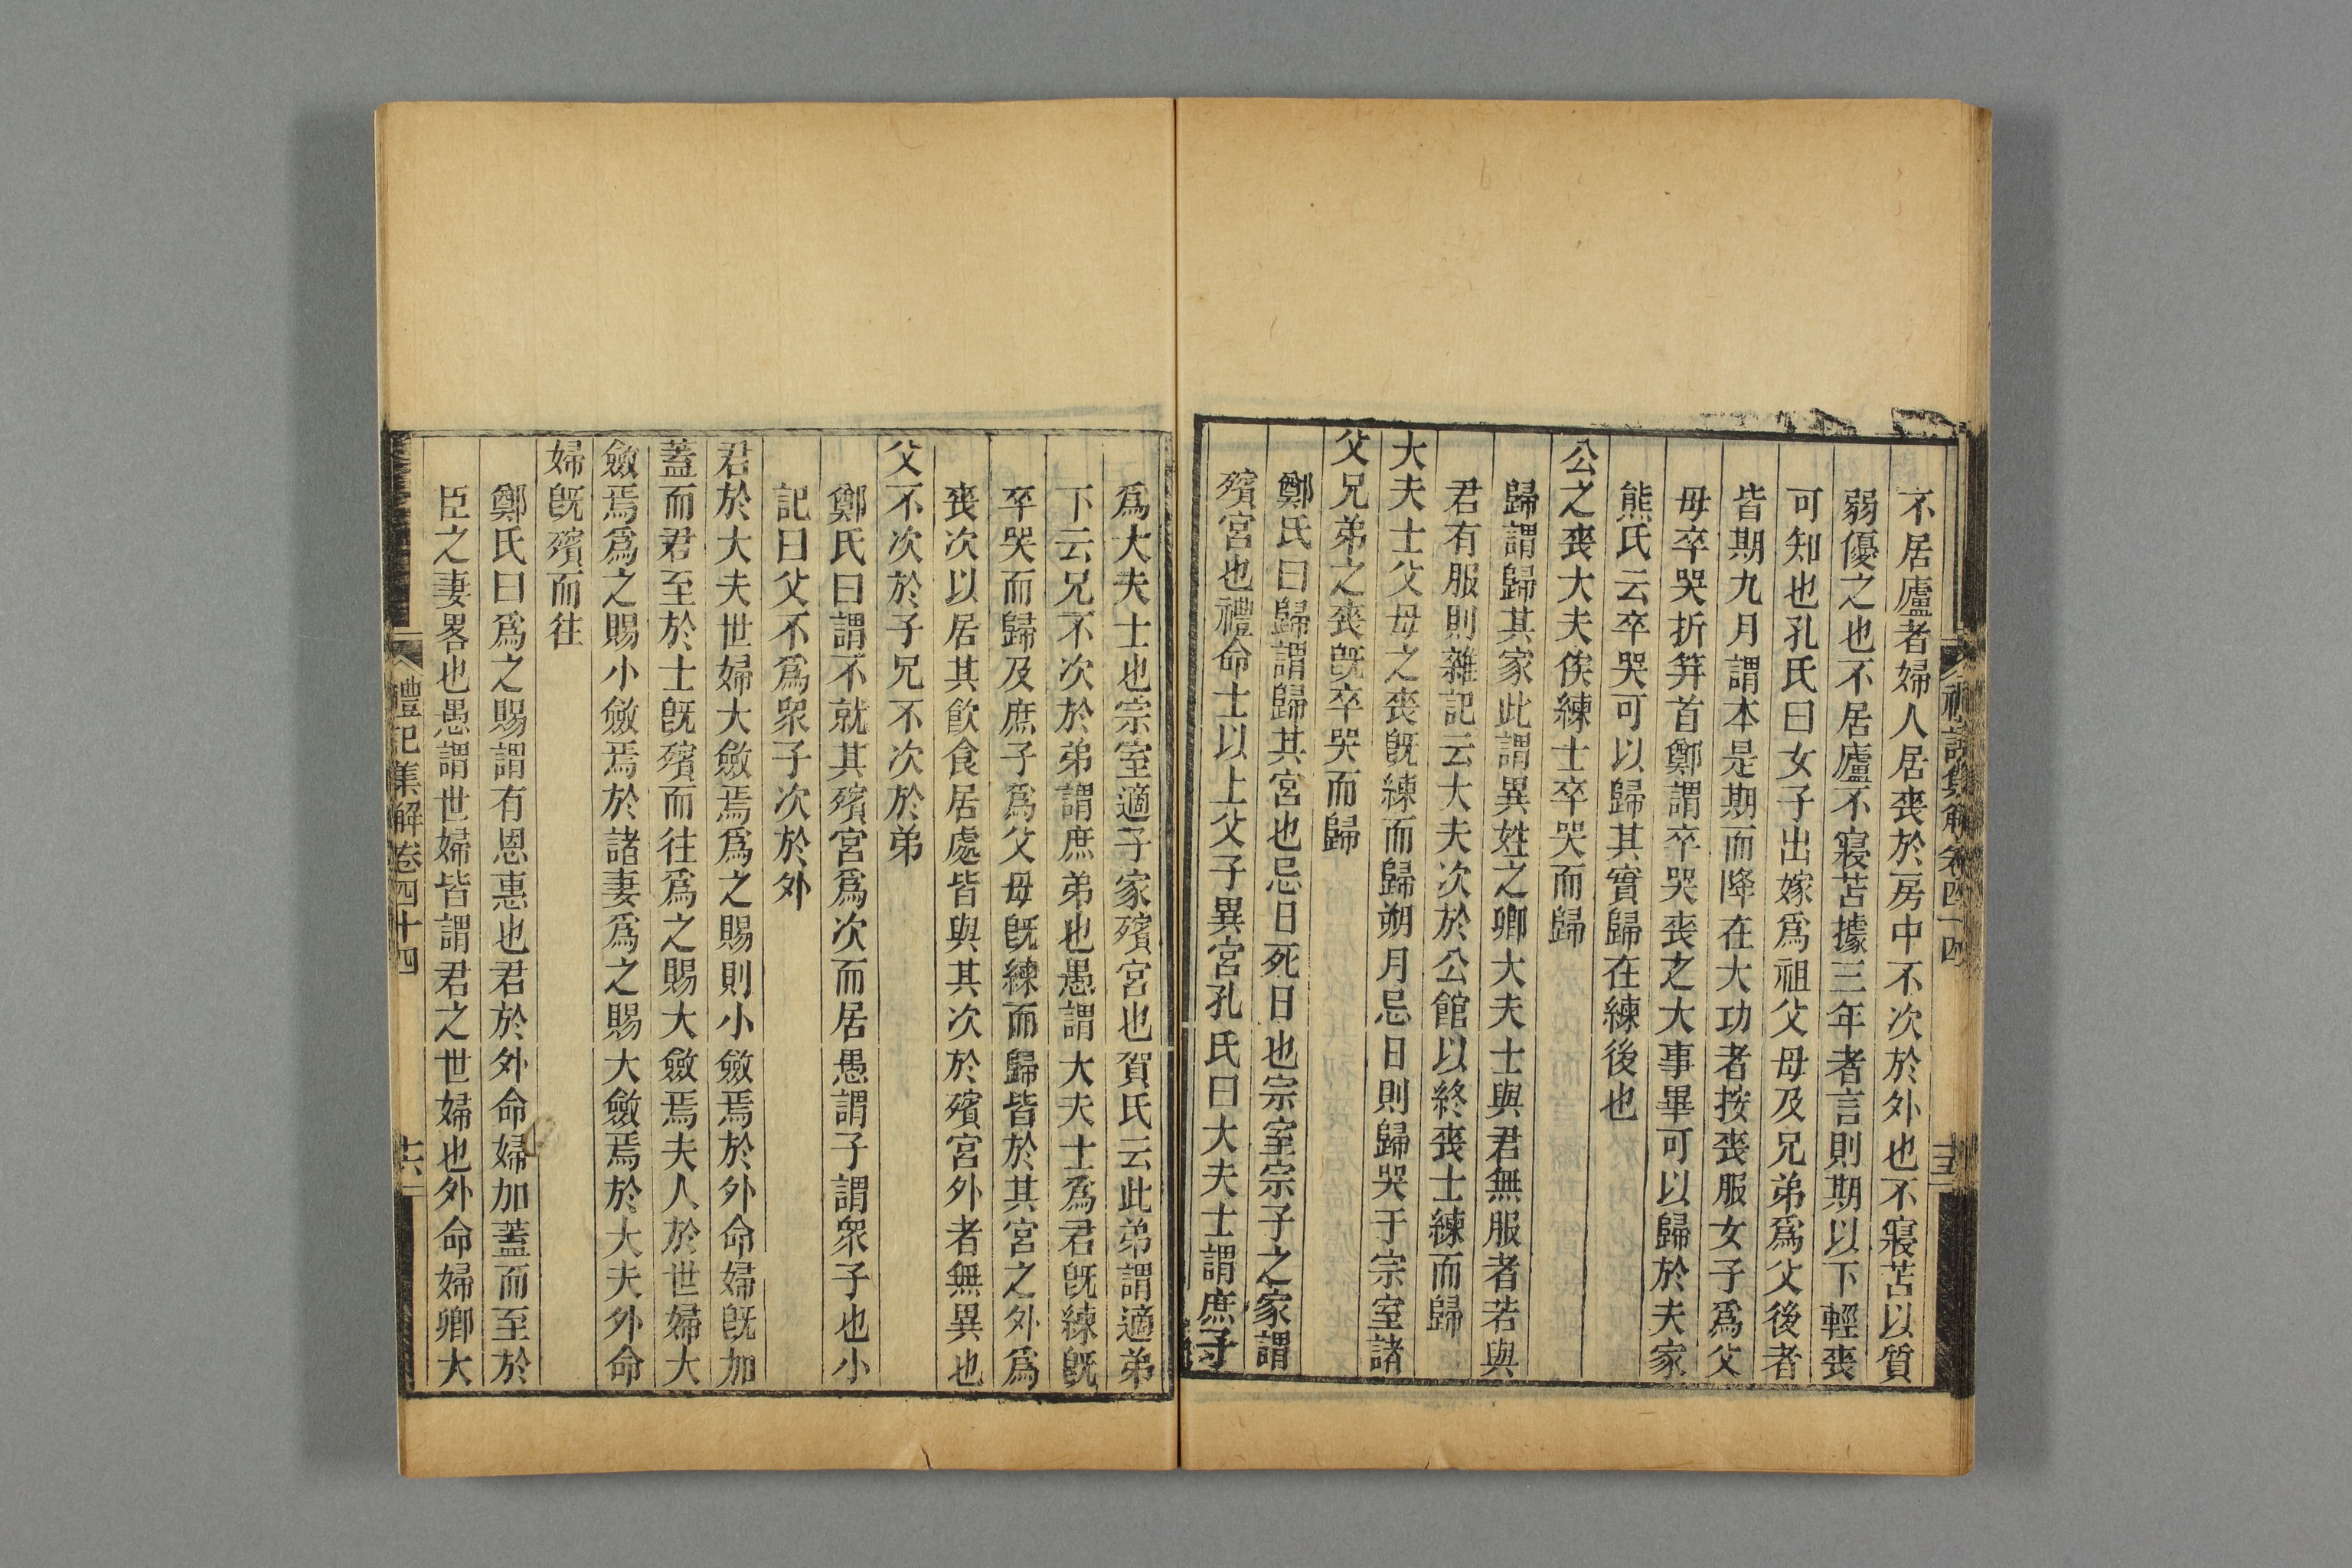 禮記集解卷四十四
十五
不居廬者婦人居喪於房中不次於外也不寢苫以質
弱優之也不居廬不寢苫據三年者言則期以下輕喪
可知也孔氏曰女子出嫁爲祖父母及兄弟爲父後者
皆期九月謂本是期而降在大功者按喪服女子爲父
母卒哭折筓首鄭謂卒哭喪之大事畢可以歸於夫家
熊氏云卒哭可以歸其實歸在練後也
公之喪大夫俟練士卒哭而歸
歸謂歸其家此謂異姓之卿大夫士與君無服者若與
君有服則雜記云大夫次於公館以終喪士練而歸
大夫士父母之喪旣練而歸朔月忌日則歸哭于宗室諸
父兄弟之喪旣卒哭而歸
鄭氏曰歸謂歸其宮也忌日死日也宗室宗子之家謂
殯宮也禮命士以上父子異宮孔氏曰大夫士謂庶子
爲大夫士也宗室適子家殯宮也賀氏云此弟謂適弟
下云兄不次於弟謂庶弟也愚謂大夫士爲君旣練旣
卒哭而歸及庶子爲父母旣練而歸皆於其宮之外爲
喪次以居其飮食居處皆與其次於殯宮外者無異也
父不次於子兄不次於弟
鄭氏曰謂不就其殯宮爲次而居愚謂子謂衆子也小
記曰父不爲衆子次於外
君於大夫世婦大斂焉爲之賜則小斂焉於外命婦旣加
蓋而君至於士旣殯而往爲之賜大斂焉夫人於世婦大
斂焉爲之賜小斂焉於諸妻爲之賜大斂焉於大夫外命
婦旣殯而往
鄭氏曰爲之賜謂有恩惠也君於外命婦加蓋而至於
臣之妻畧也愚謂世婦皆謂君之世婦也外命婦卿大
禮記集解卷四十四
十六